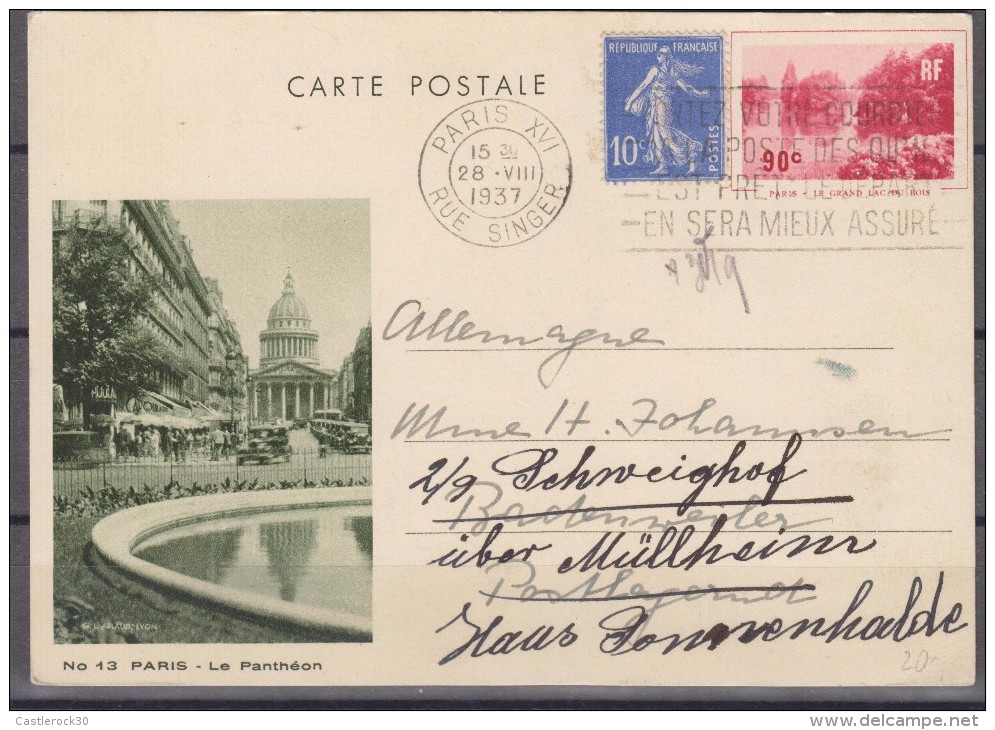 CARTE POSTALE
RÉPUBLIQUE FRANÇAISE
10c
POSTES
RF
90c
PARIS LE GRAND LAC DU BOIS
PARIS XVI
15 30
28 · VIII
1937
RUE SINGER
VOTRE COURRIE
A LA POSTE DES QU'IL
EST PRET LE DEPART
EN SERA MIEUX ASSURÉ
Allemagne
Mme H. Johannsen
Schweighof
Badenweiler
über Müllheim
Postlagernd
Haus Sonnenhalde
20-
No 13 PARIS - Le Panthéon
Castlerock30
delcampe.net